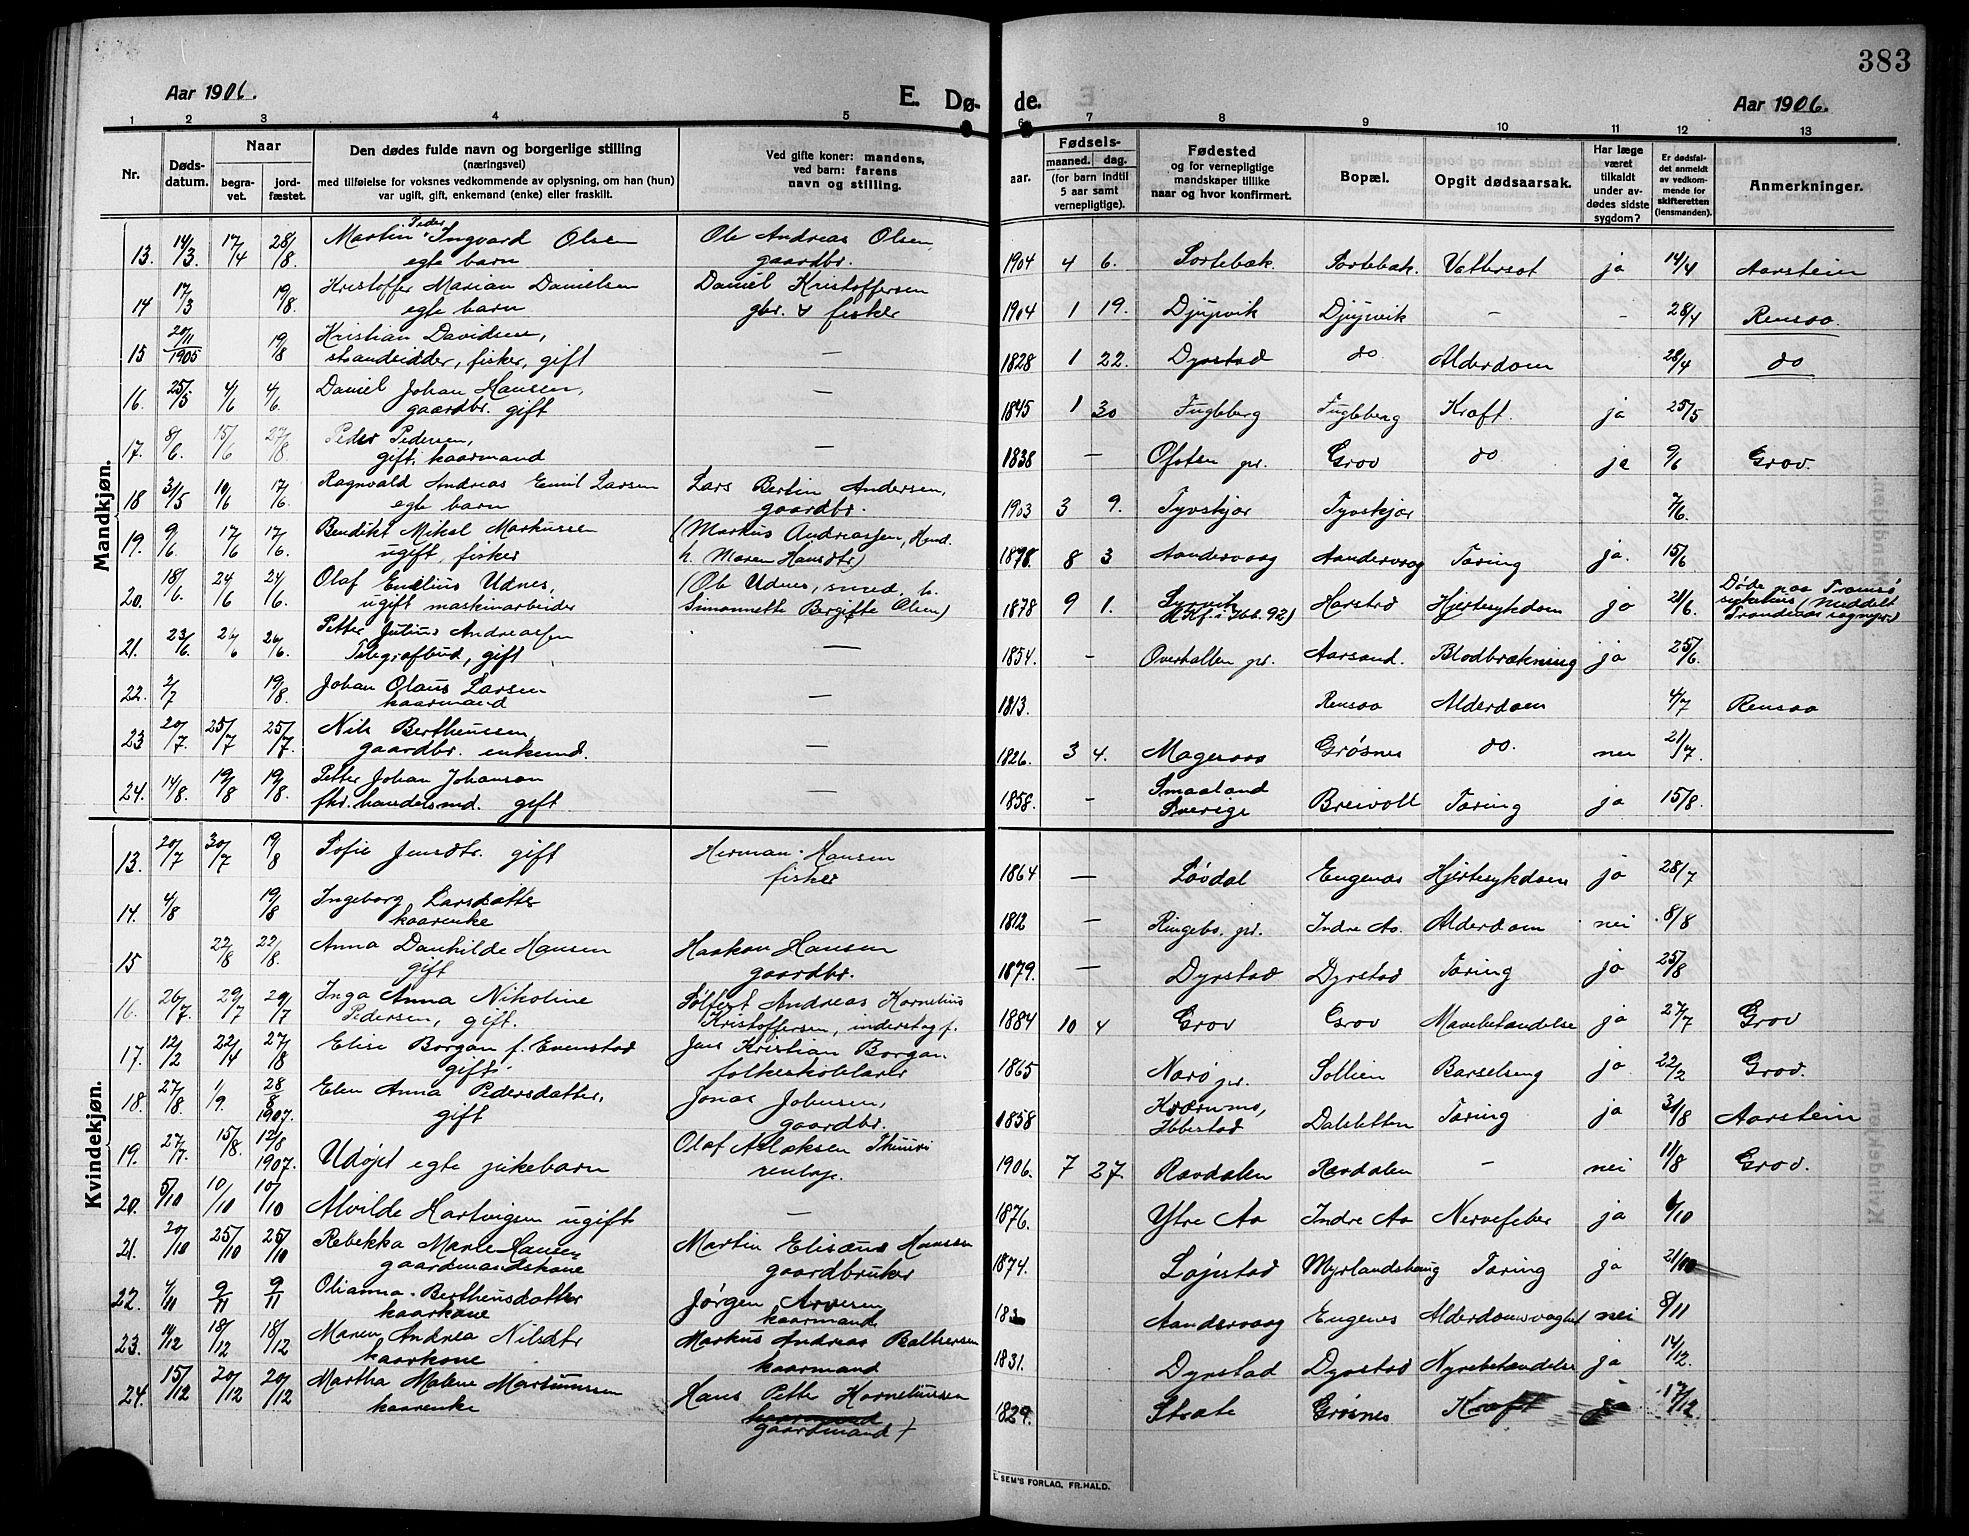 383
Aar 1906.
E. Dø-
de.
Aar 1906.
1 2 3 4 5 6 7 8 9 10 11 12 13
Nr.
Døds-
datum.
Naar
begra-
vet.
jord-
fæstet.
Den dødes fulde navn og borgerlige stilling
(næringsvei)
med tilføielse for voksnes vedkommende av oplysning, om han (hun)
var ugift, gift, enkemand (enke) eller fraskilt.
Ved gifte koner: mandens,
ved barn: farens
navn og stilling.
Fødsels-
aar.
maaned. dag.
(for barn indtil
5 aar samt
vernepligtige).
Fødested
og for vernepligtige
mandskaper tillike
naar og hvor konfirmert.
Bopæl.
Opgit dødsaarsak.
Har læge
været
tilkaldt
under av-
dødes sidste
sygdom?
Er dødsfal-
det anmeldt
av vedkom-
mende for
skifteretten
(lensmanden).
Anmerkninger.
Mandkjøn.
13. 14/3. 17/4 28/8 Martin Peder Ingvard Olsen Ole Andreas Olsen, 1904 4 6. Sortebæk. Sortebæk. Vattersot ja 14/4 Aarstein
egte barn gaardbr.
14 17/3 19/8 Kristoffer Marian Danielsen Daniel Kristoffersen 1904 1 19. Djupvik Djupvik - - 28/4 Rensaa.
egte barn gbr. & fisker
15 20/11 1905 19/8 Kristian Davidsen, - 1828 1 22. Dyrstad do Alderdom 28/4 do
strandsidder, fisker, gift
16. 25/5 4/6 4/6. Daniel Johan Hansen, - 1845 1 30 Fugleberg Fugleberg Kræft. ja 25/5
gaardbr. gift
17. 8/6. 15/6 27/8. Peder Pedersen, - 1838 - Ofoten pr. Grov do ja 9/6 Grov.
gift, kaarmand
18 31/5 10/6 17/6. Ragnvald Andreas Emil Larsen Lars Bertin Andersen, 1903 3 9. Tyvskjær Tyvskjær 7/6.
egte barn gaardbr.
19. 9/6. 17/6 17/6. Bendikt Mikal Markussen (Markus Andreassen, 1878. 8 3 Aandervaag Aandervaag Tæring ja. 15/6
ugift, fisker h. Maren Hansdtr)
20. 18/6. 24/6 24/6. Olaf Emelius Udnes, (Ole Udnes, smed, h. 1878 9 1. Harstad Hjertesykdom ja 21/6. Døde paa Tromsø
ugift maskinarbeider Simonnette Birgitte Olsen) (Meddelt
Trondenes sognepr.)
21. 23/6. 26/6 26/6. Petter Julius Andreassen - 1854. - Overhallen pr. Aarsand. Blodbrækning ja 25/6
Telegrafbud, gift
22. 2/7 19/8. Johan Olaus Larsen - 1813. Rensaa Alderdom 4/7 Rensaa
kaarmand
23 20/7. 25/7 25/7 Nils Bertheussen, - 1826. 3 4. Mageraas Grøsnes do. nei 21/7.
gaardbr. enkemd.
24. 14/8. 19/8 19/8. Petter Johan Johanson - 1858. - Smaaland Breivoll Tæring ja 15/8.
fhv. handelsmd. gift Sverige
Kvindekjøn.
13. 20/7 30/7 19/8 Sofie Jensdtr. gift Herman Hansen 1864 - Løvdal Engenæs Hjertesykdom ja 28/7
fisker
14. 4/8 19/8 Ingeborg Larsdatter 1812 - Ringebo. pr. Indre Aa. Alderdom nei 8/8
kaarenke
15 22/8 22/8. Anna Danhilde Hansen Haakon Hansen 1879. - Dyrstad Dyrstad Tæring ja 25/8
gift gaardbr.
16. 26/7. 29/7 29/7 Inga Anna Nikoline Andreas Kornelius 1884 10 4 Grov Grov Mavebetændelse ja 27/7 Grov
Pedersen, gift. Kristoffersen,
17. 12/2 22/4 27/8 Elise Borgan f. Evenstad Jens Kristian Borgan 1865 Nærø pr. Sollien Barselseng ja 22/2 Grov.
gift. folkeskolelærer
18. 27/8 1/9. 28/8 1907. Elen Anna Pedersdatter, Jonas Johnsen, 1858 Dalsletten Tæring ja 31/8 Aarstein
gift gaardbr. Ibbestad
19. 27/7. 15/8. 12/8 1907. Udøpt egte pikebarn Olaf Aslaksen Thuuri 1906. 7 27. Rævdalen Rævdalen - nei 11/8 Grov.
renlap.
20. 5/10 10/10 10/10 Alvilde Hartvigsen ugift - 1876. Ytre Aa Indre Aa Nervefeber ja 6/10
21. 20/10 25/10 25/10 Rebekka Marie Hansen Martin Elisæus Hansen 1874. Løpstad Myrlandshaug Tæring ja 21/10
gaardmandskone gaardbruker
22. 4/11 9/11 9/11 Olianna Bertheusdatter Jørgen Arvesen 183 Aandervaag Engenes Alderdomssvaghet nei 8/11
kaarkone kaarmand
23. 11/12 18/12 18/12 Maren Andrea Nilsdtr Markus Andreas Baltsersen 1831. Dyrstad Dyrstad Nyrebetændelse ja 14/12.
kaarkone kaarmand
24. 15/12 20/12 20/12 Martha Malene Hans Petter Korneliussen 1829. Strate Grøsnes Kræft ja 17/12
kaarenke kaarmand
gaardmand +
L. SEM'S FORLAG, FR.HALD.